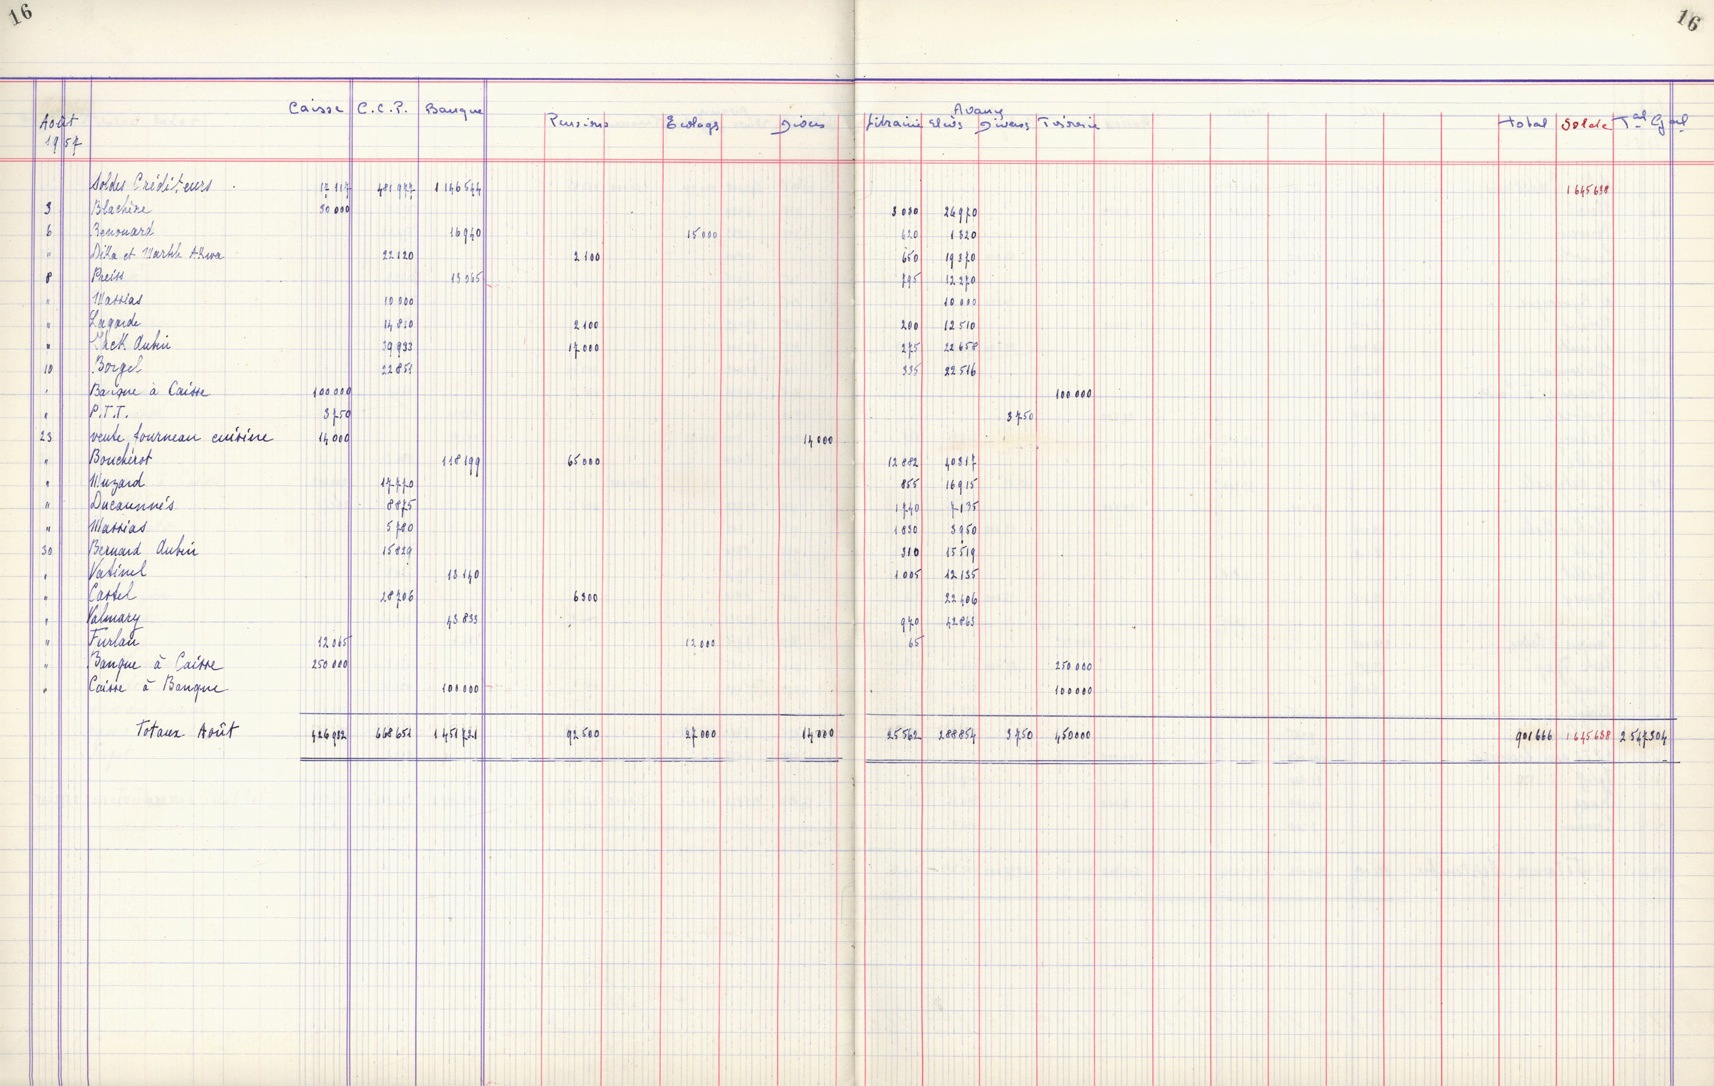 16 16
Caisse C.C.P. Banque Avances
Août Pensions Ecolages Divers Librairie Elèves Divers Trésorerie total Solde Tal Gal
1957
Soldes Créditeurs 17 117 481 977 1 146 544 1 645 638
3 Blachère 30 000 3 030 26 970
6 Renouard 16 940 15 000 620 1 320
" Dilla et Martth Akwa 22 120 2 100 650 19 370
8 Preiss 13 065 795 12 270
" Massias 10 000 10 000
" Lagarde 14 810 2 100 200 12 510
" Jack Aubin 39 933 17 000 275 22 658
10 Borgel 22 851 335 22 516
" Banque à Caisse 100 000 100 000
" P.T.T. 3 750 3 750
23 vente fourneau cuisine 14 000 14 000
" Bouchérot 118 199 65 000 12 882 40 317
" Muzard 17 770 855 16 915
" Ducaunnés 8 875 1 740 7 135
" Massias 5 780 1 830 3 950
30 Bernard Aubin 15 829 310 15 519
" Vatinel 13 140 1 005 12 135
" Castel 28 706 6 300 22 406
" Valmary 43 833 970 42 863
" Furlan 12 065 12 000 65
" Banque à Caisse 250 000 250 000
" Caisse à Banque 100 000 100 000
Totaux Août 426 932 668 651 1 451 721 92 500 27 000 14 000 25 562 288 854 3 750 450 000 901 666 1 645 638 2 547 304